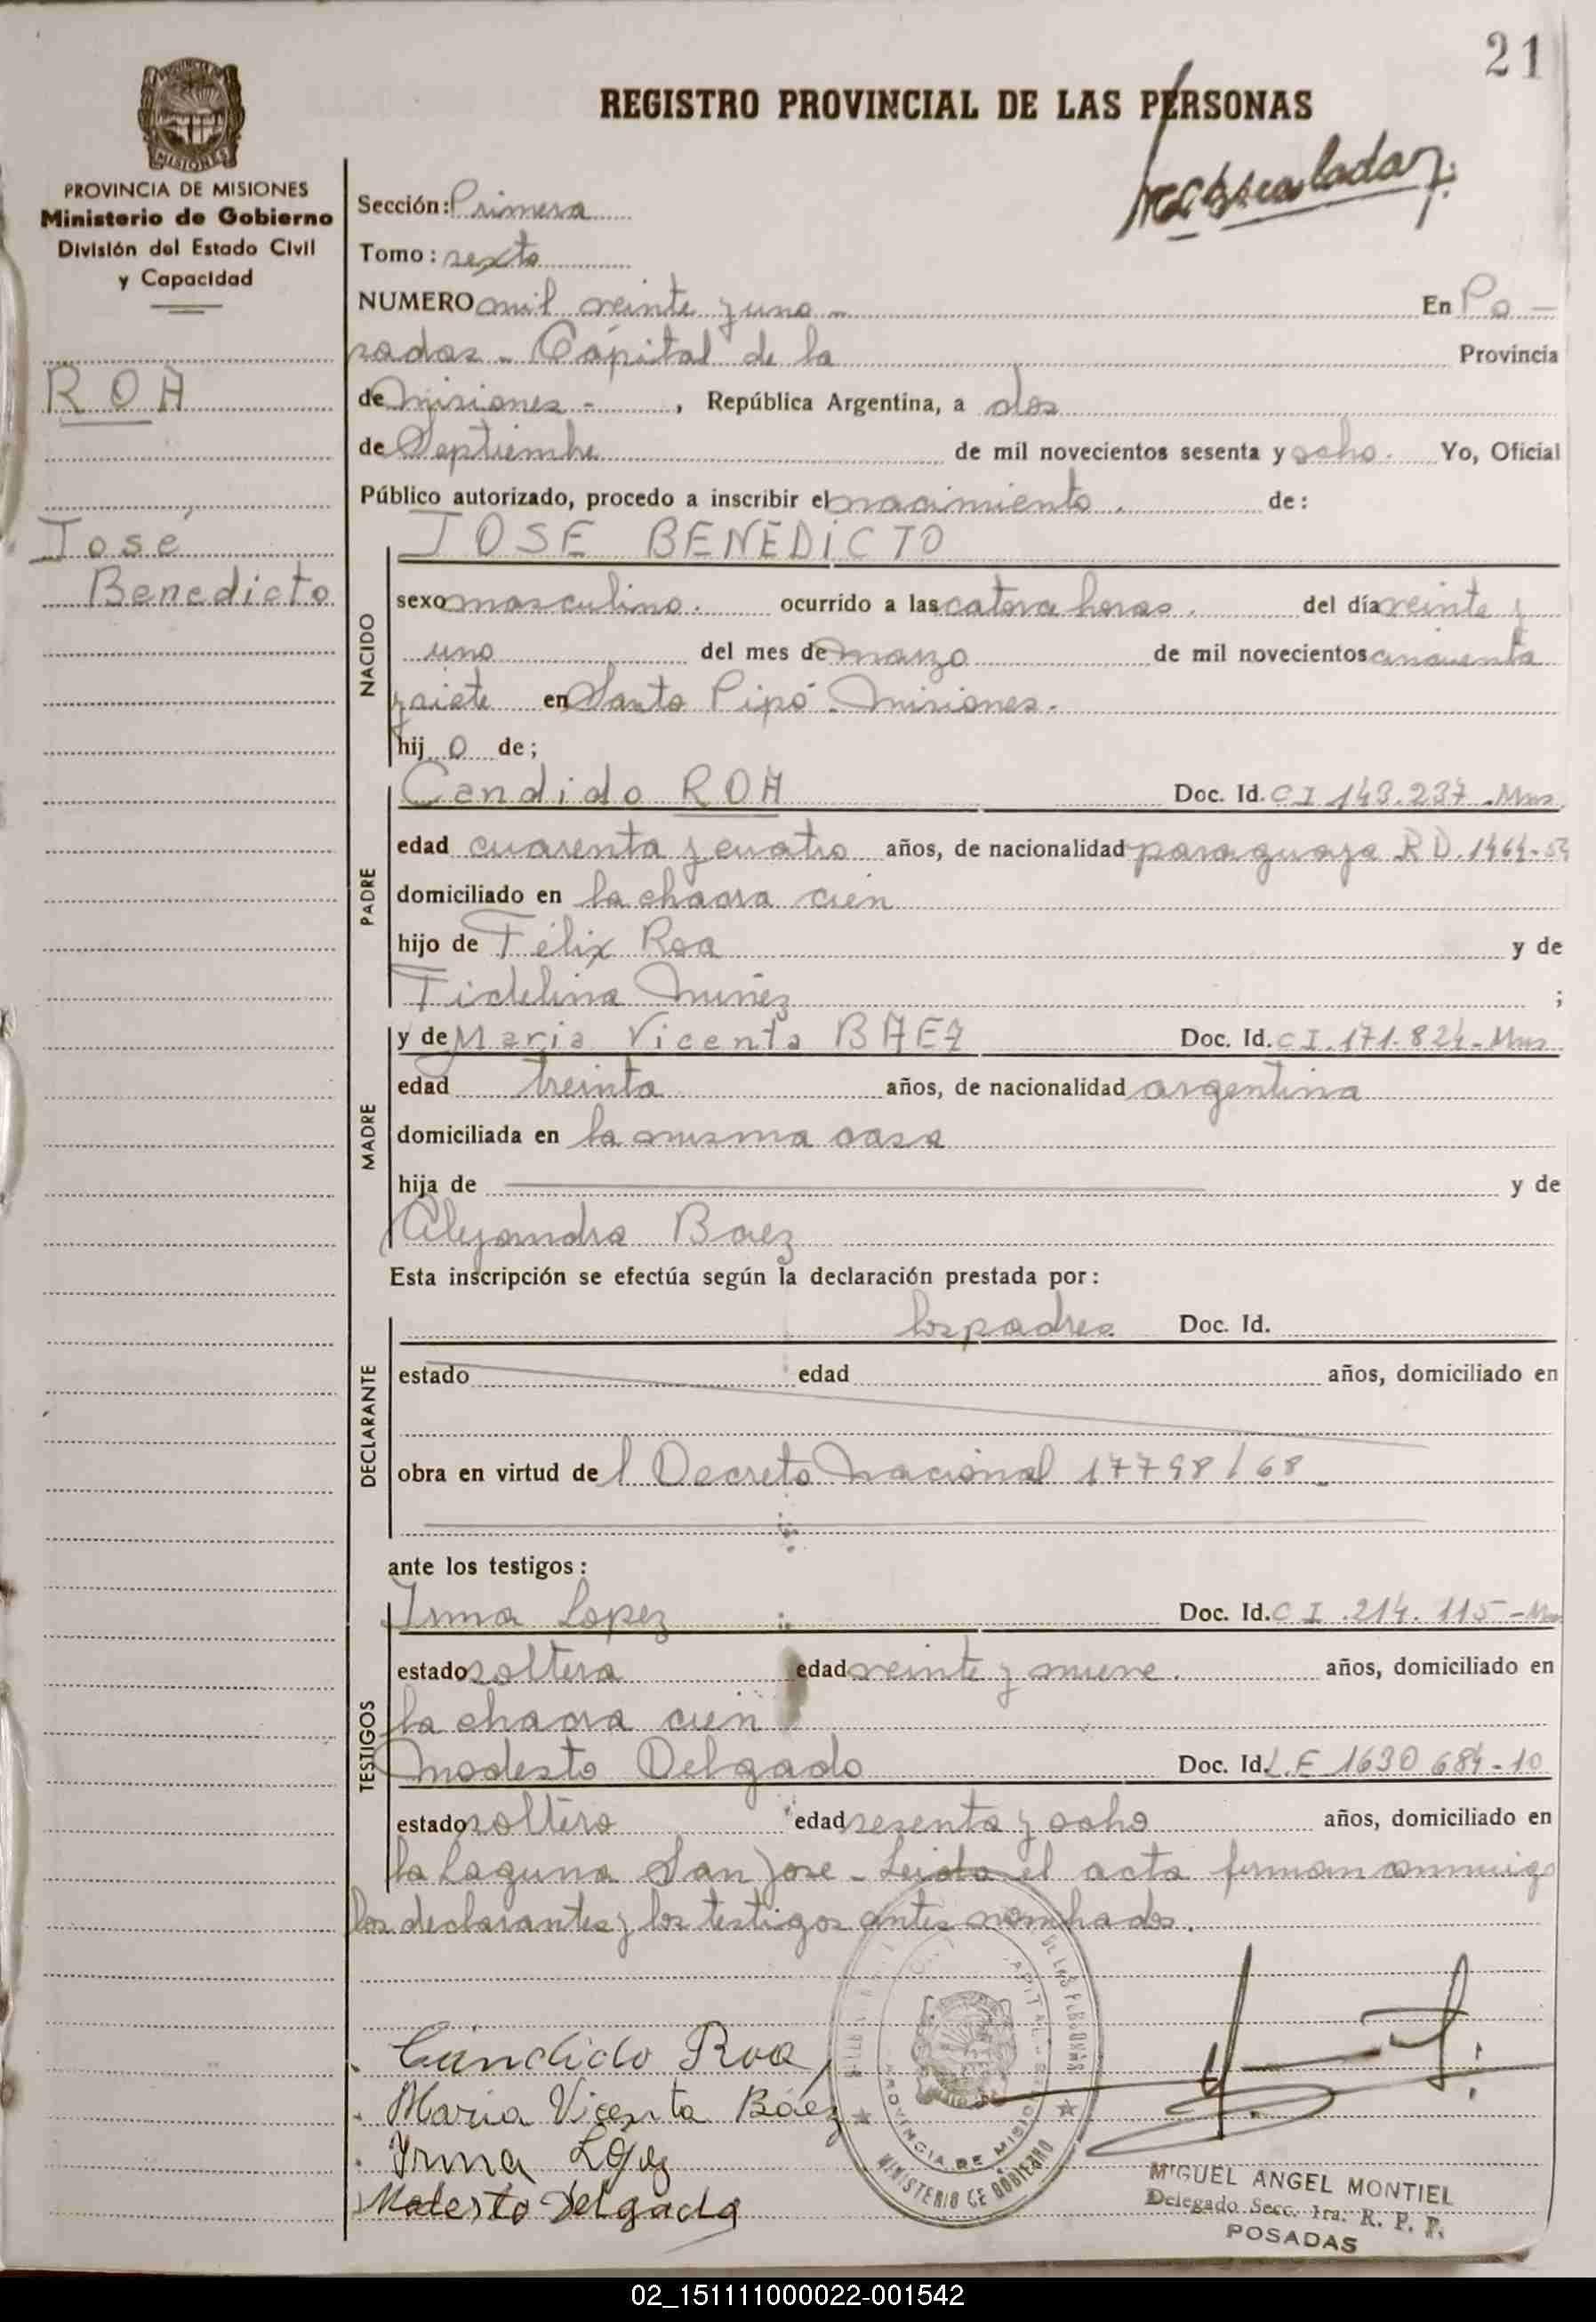 21
REGISTRO PROVINCIAL DE LAS PERSONAS
MISIONES
PROVINCIA DE MISIONES
Ministerio de Gobierno
División del Estado Civil
y Capacidad
ROA
José
Benedicto
Sección: Primera
Tomo: sexto
NUMERO mil veinte y uno - En Po-
sadas - Capital de la Provincia
de Misiones - , República Argentina, a dos
de Septiembre de mil novecientos sesenta y ocho. Yo, Oficial
Público autorizado, procedo a inscribir el nacimiento. de:
JOSE BENEDICTO
NACIDO
sexo masculino. ocurrido a las catorce horas. del día veinte y
uno del mes de marzo de mil novecientos cincuenta
y siete en Santo Pipó - Misiones.
hij o de;
PADRE
Candido ROA Doc. Id. C I 143.237 - Mnes
edad cuarenta y cuatro años, de nacionalidad paraguaya R D. 1464-
domiciliado en la chacra cien
hijo de Félix Roa y de
Fidelina Nuñez ;
MADRE
y de Maria Vicenta BAEZ Doc. Id. C I. 171.824 - Mnes
edad treinta años, de nacionalidad argentina
domiciliada en la misma casa
hija de y de
Alejandra Baez
Esta inscripción se efectúa según la declaración prestada por:
DECLARANTE
los padres Doc. Id.
estado edad años, domiciliado en
obra en virtud de l Decreto Nacional 17798/68
ante los testigos:
TESTIGOS
Irma Lopez Doc. Id. C I .214. 115 - Mnes
estado soltera edad veinte y nueve. años, domiciliado en
la chacra cien
Modesto Delgado Doc. Id. L.E 1630 684-10
estado soltero edad sesenta y ocho años, domiciliado en
la Laguna San Jose - Leida el acta firman conmigo
los declarantes y los testigos antes nombrados.
Cándido Roa
Maria Vicenta Báez
Irma López
Modesto Delgado
PROVINCIA DE MISIONES
MINISTERIO DE GOBIERNO
MIGUEL ANGEL MONTIEL
Delegado Secc. 1ra. R. P. P.
POSADAS
02_151111000022-001542